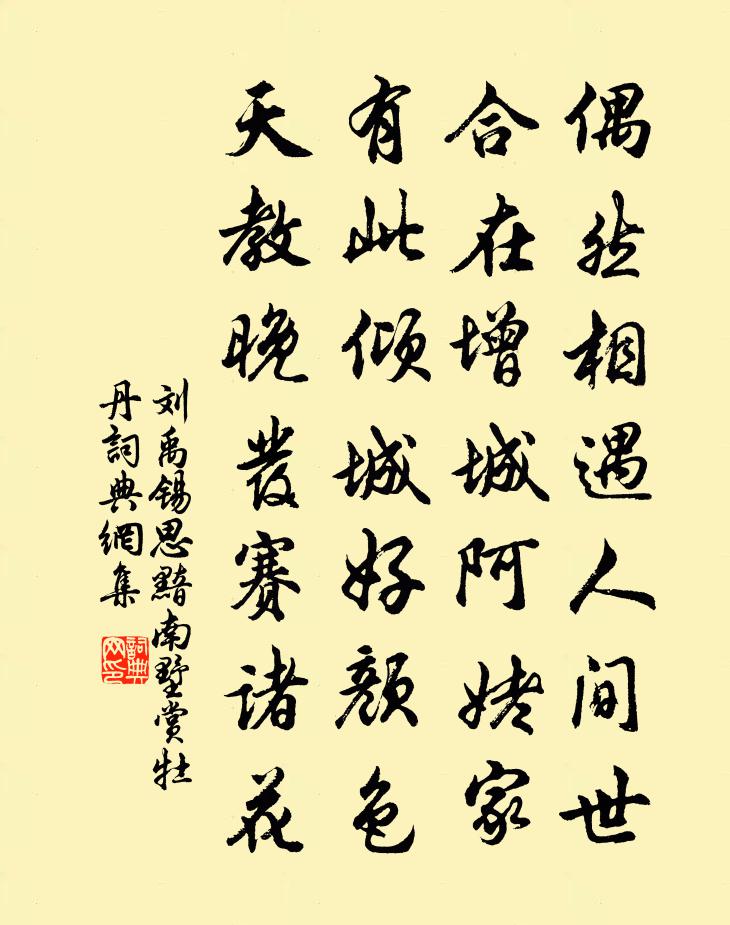 偶然相遇人间世
合在增城阿姥家
有此倾城好颜色
天教晚發赛诸花
刘禹锡思黯南墅赏牡
丹詞典網集
詞典
网印